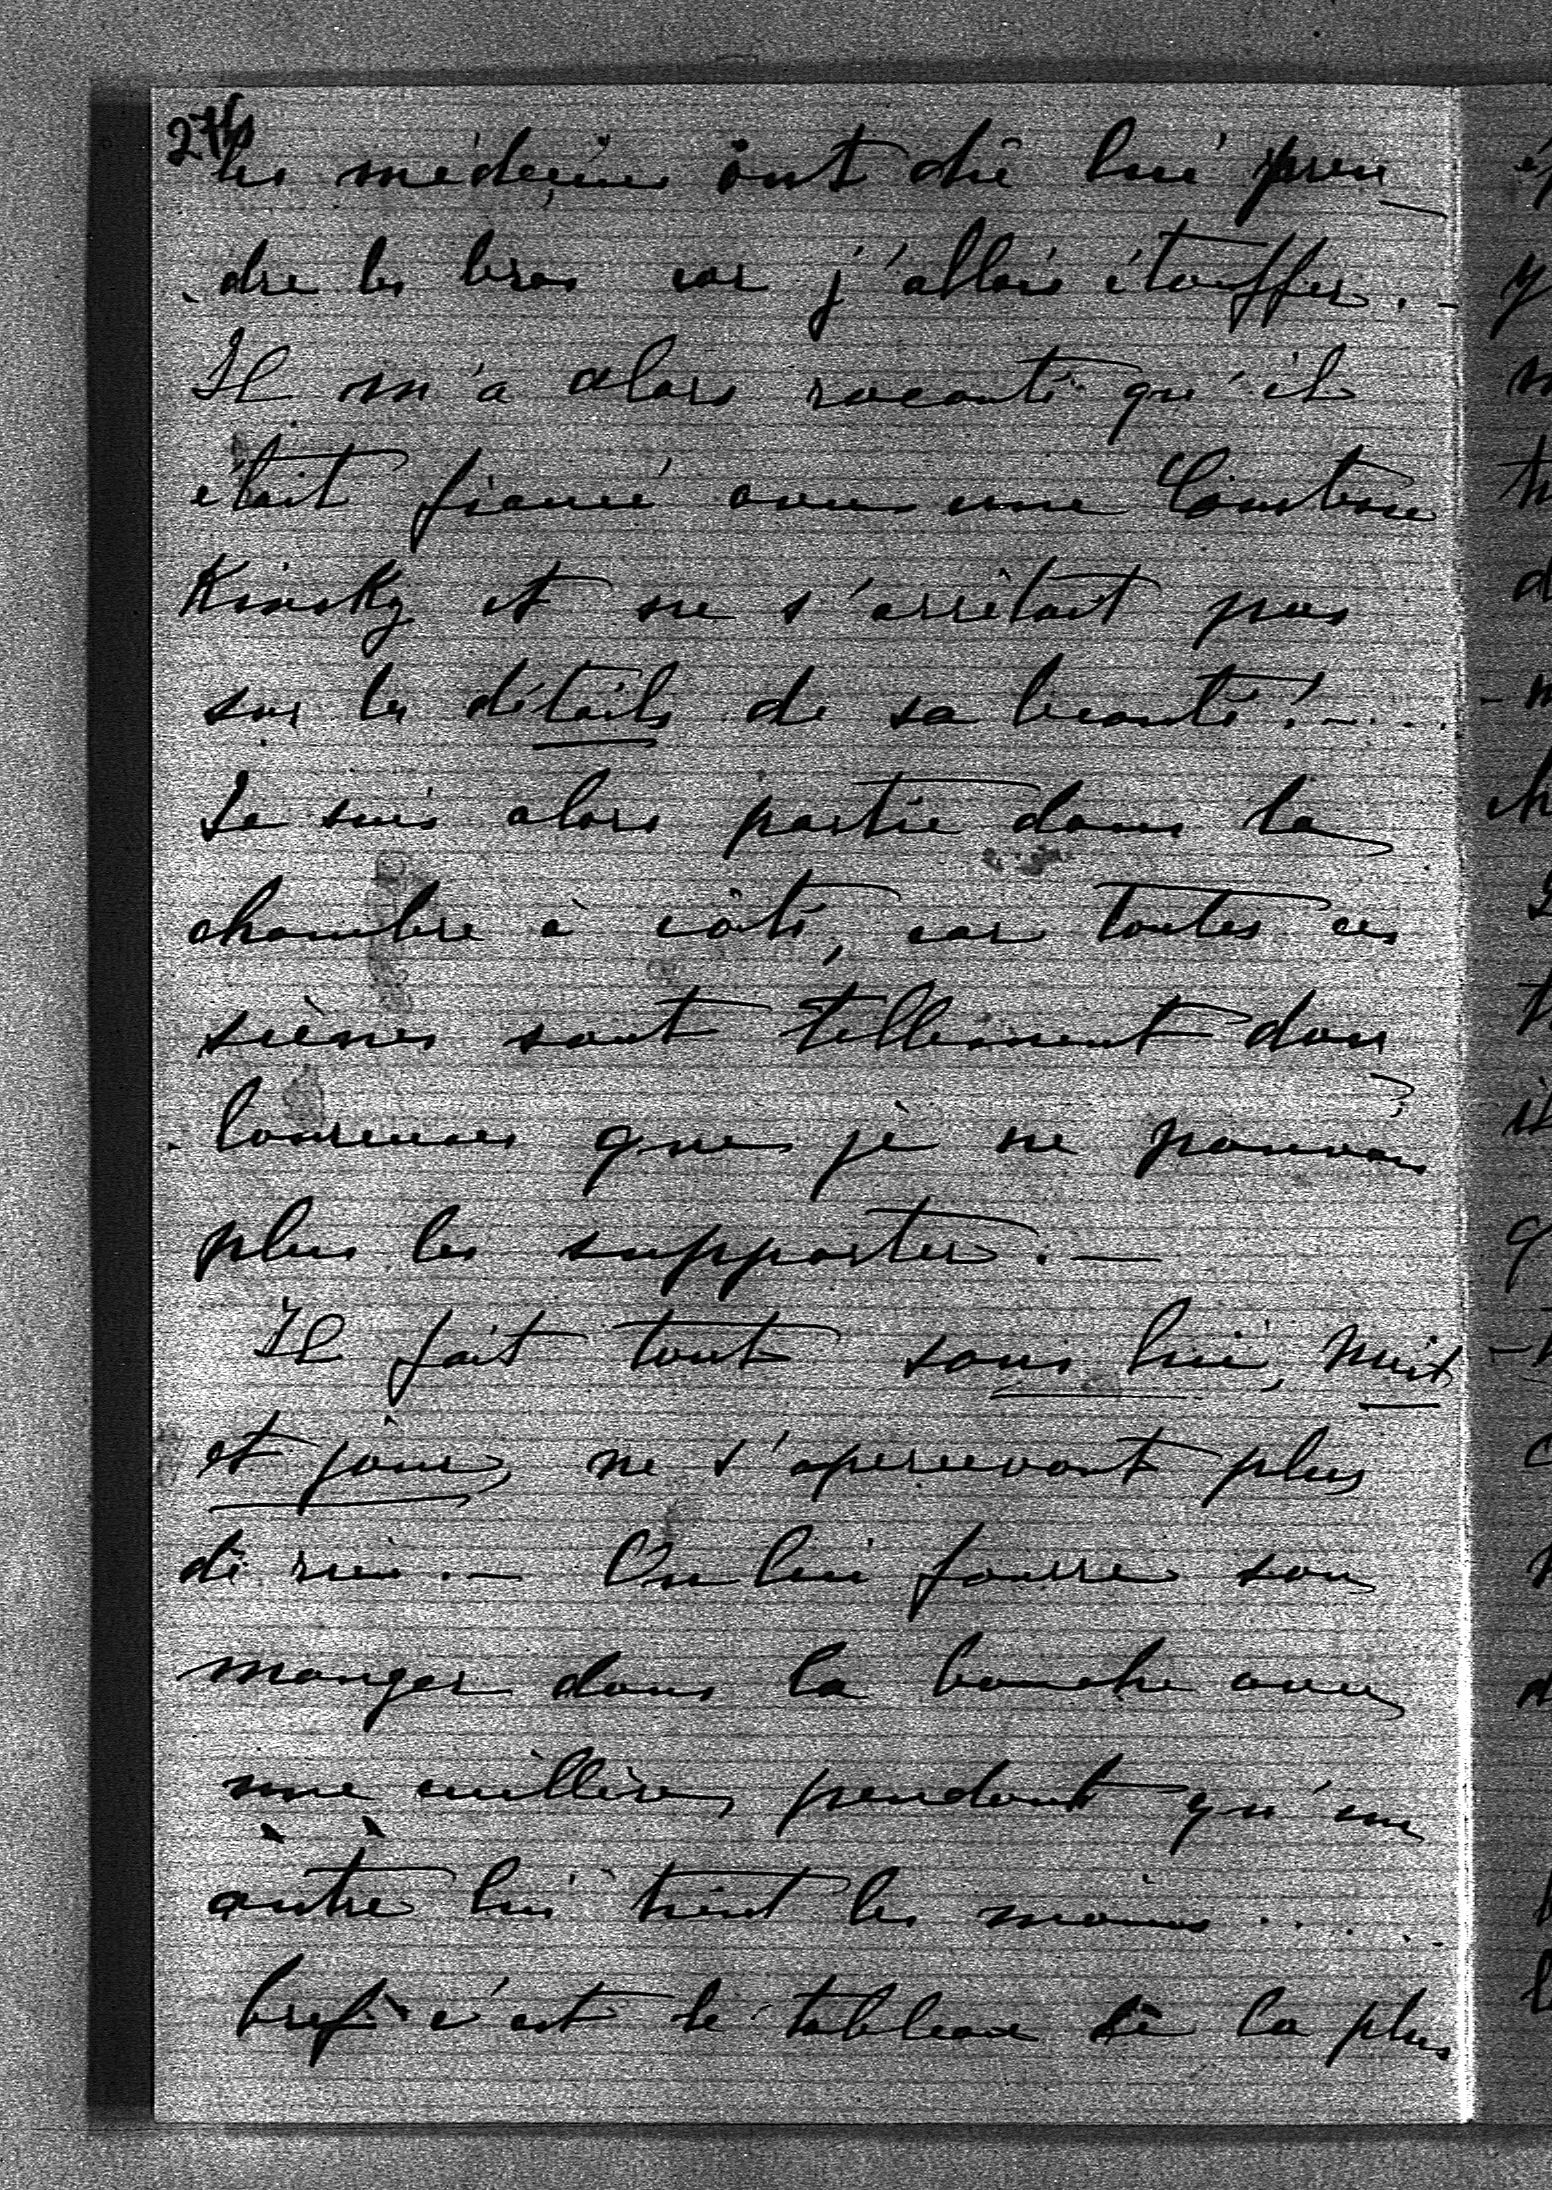 276
les médecins ont dû lui pren
dre les bras car j'allais étouffer. -
Il m'a alors raconté qu'il
était fiancé avec une Comtesse
Kinsky et ne s'arrêtait pas
sur les détails de sa beauté! - ....
Je suis alors partie dans la
chambre à côté, car toutes ces
scènes sont tellement dou
loureuses que je ne pouvais
plus les supporter. —
Il fait tout sous lui, nuit
et jour, ne s'apercevant plus
de rien. — On lui fourre son
manger dans la bouche avec
une cuillère, pendant qu'un
autre lui tient les mains ....
bref c'est le tableau de la plus